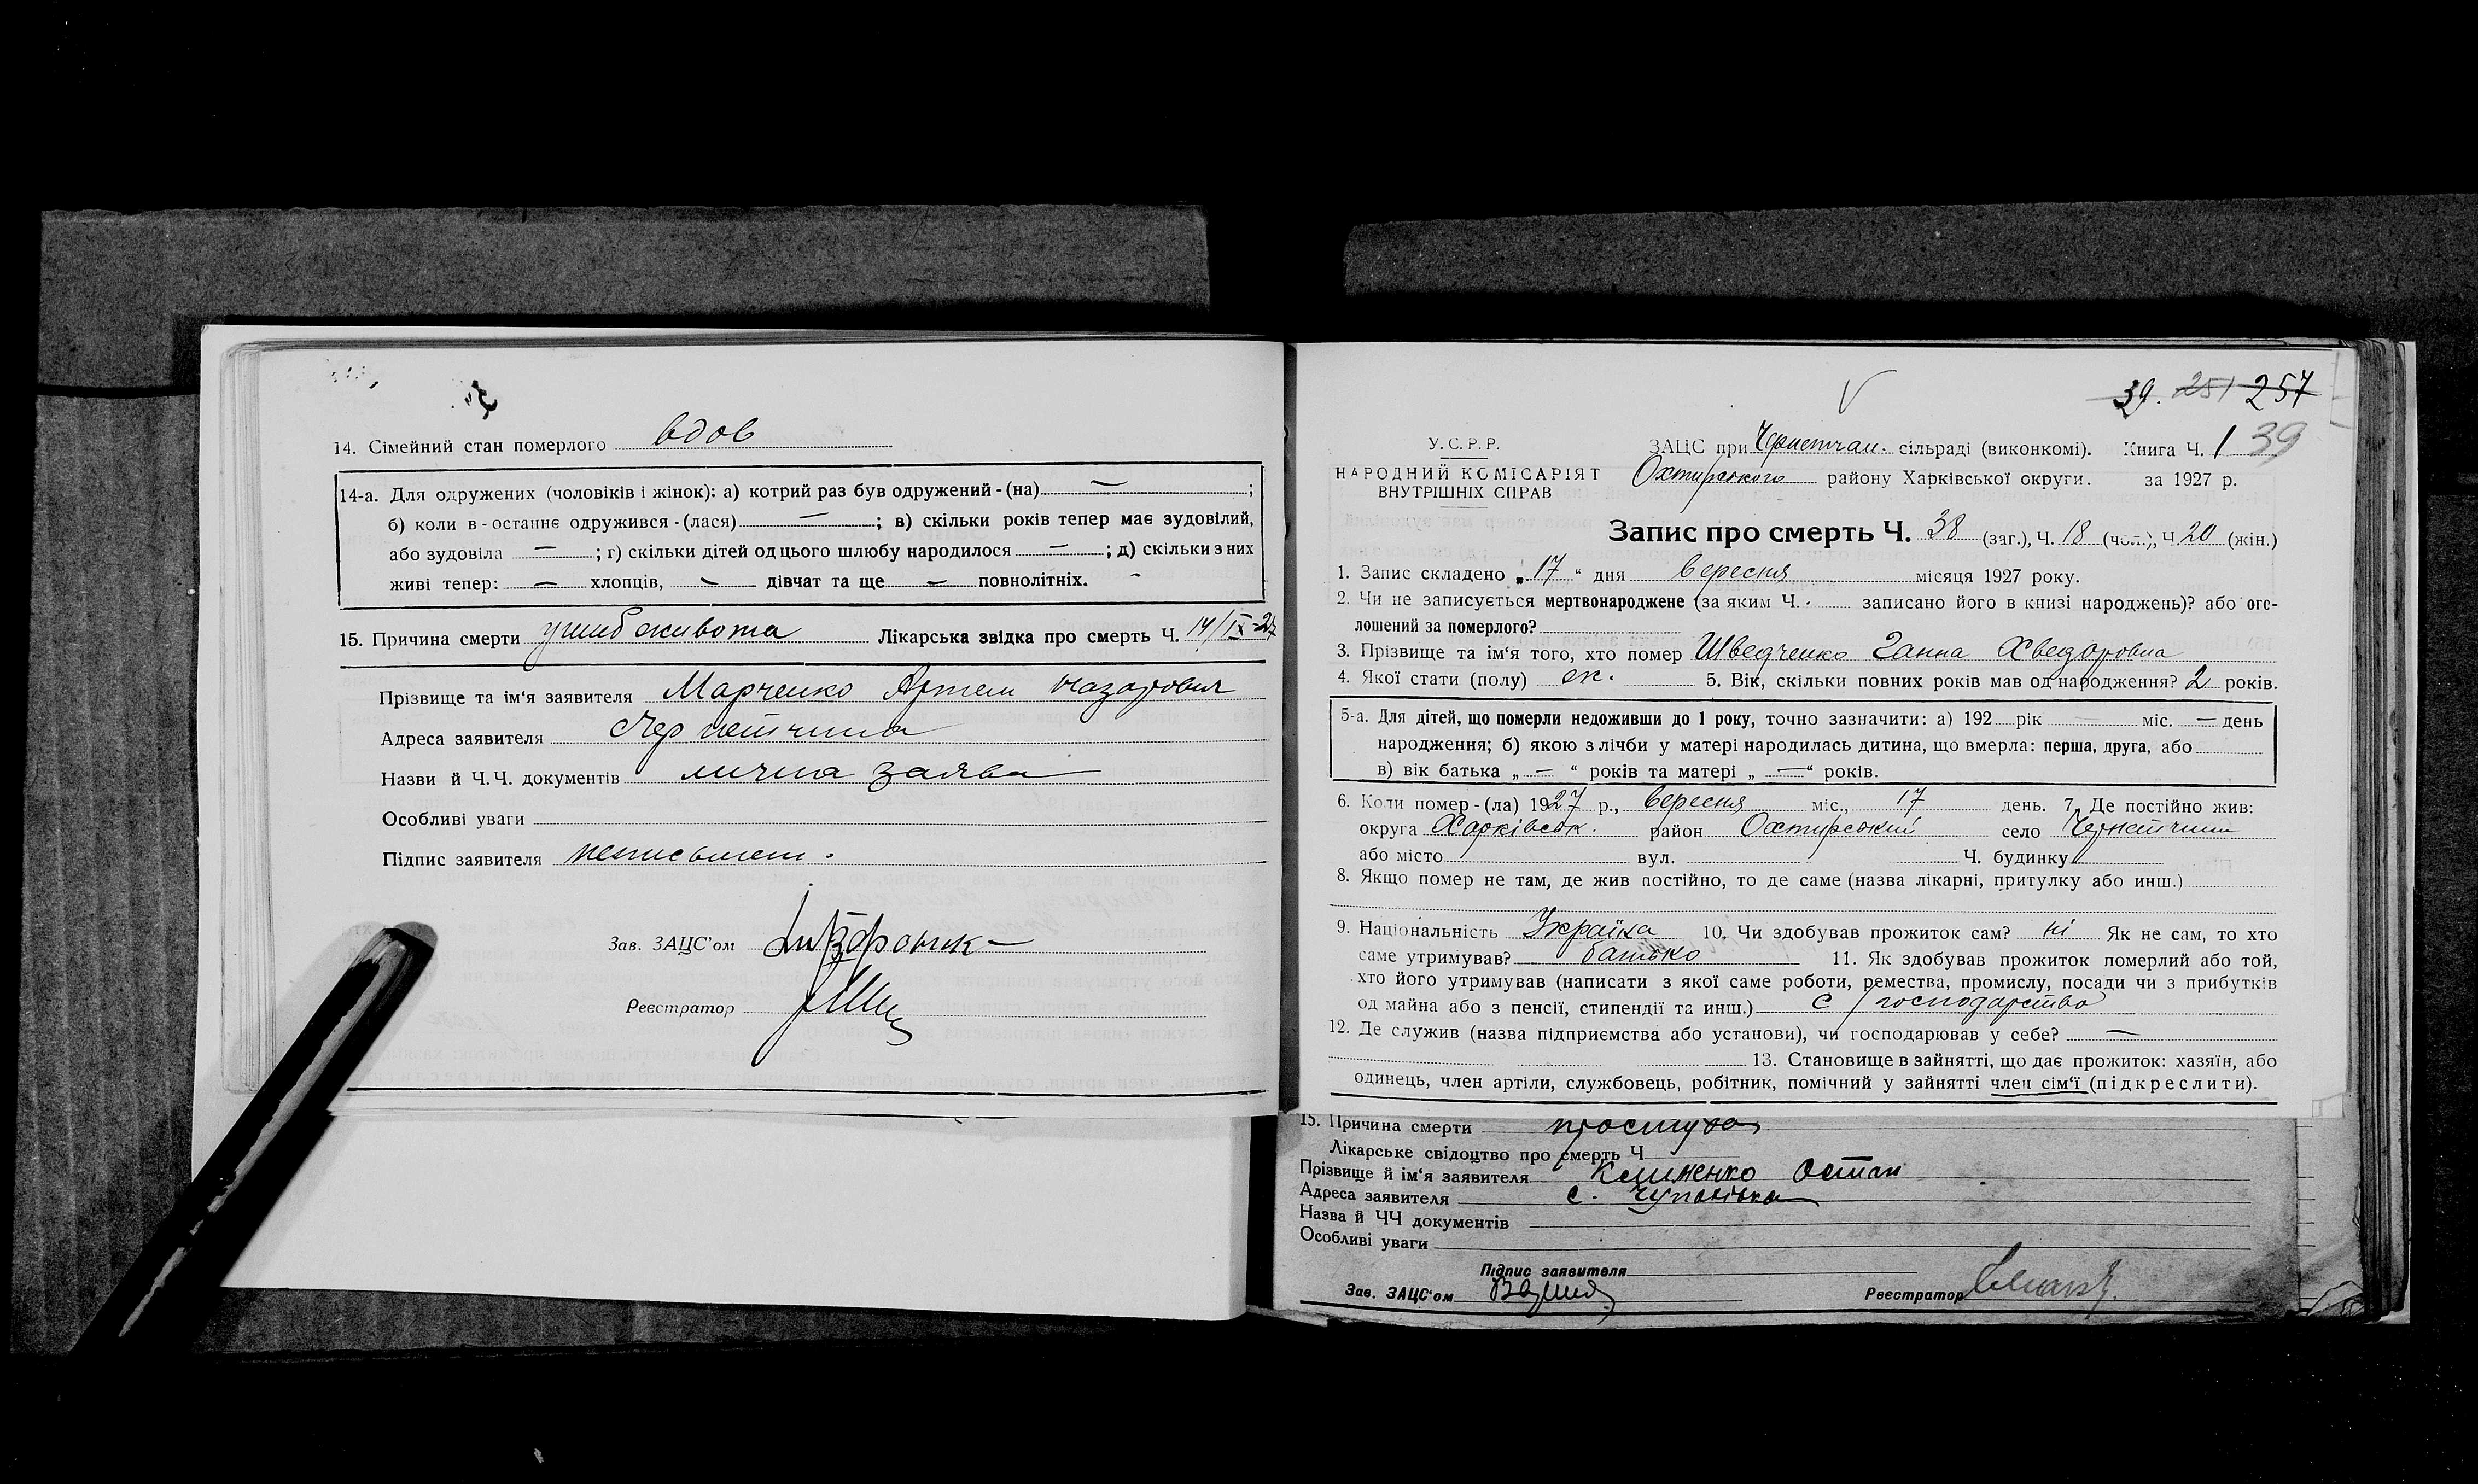 14. Сімейний стан померлого вдов
14-а. Для одружених (чоловіків і жінок): а) котрий раз був одружений - (на) — ;
б) коли в - останнє одружився - (лася) — ; в) скільки років тепер має зудовілий,
або зудовіла — ; г) скільки дітей од цього шлюбу народилося — ; д) скільки з них
живі тепер: — хлопців, — дівчат та ще — повнолітніх.
15. Причина смерти ушиб живота Лікарська звідка про смерть Ч. 14/IX-27
Прізвище та ім'я заявителя Марченко Артем Назарович
Адреса заявителя Чернетчина
Назви й Ч.Ч. документів лична заява
Особливі уваги
Підпис заявителя неписьмен.
Зав. ЗАЦС'ом
Реєстратор
39. 251 257
У.С.Р.Р.
НАРОДНИЙ КОМІСАРІЯТ
ВНУТРІШНІХ СПРАВ
ЗАЦС при Чернетчан. сільраді (виконкомі). Книга Ч. 1 39
Охтирського району Харківської округи. за 1927 р.
Запис про смерть Ч. 38 (заг.), Ч. 18 (чол.), Ч. 20 (жін.)
1. Запис складено „ 17 “ дня вересня місяця 1927 року.
2. Чи не записується мертвонароджене (за яким Ч. записано його в книзі народжень)? або ого-
лошений за померлого?
3. Прізвище та ім'я того, хто помер Шведченко Ганна Хведоровна
4. Якої стати (полу) ж. 5. Вік, скільки повних років мав од народження? 2 років.
5-а. Для дітей, що померли недоживши до 1 року, точно зазначити: а) 192 рік — міс. — день
народження; б) якою з лічби у матері народилась дитина, що вмерла: перша, друга, або
в) вік батька „ — “ років та матері „ — “ років.
6. Коли помер - (ла) 1927 р., вересня міс., 17 день. 7. Де постійно жив:
округа Харківськ. район Охтирський село Чернетчина
або місто вул. Ч. будинку
8. Якщо помер не там, де жив постійно, то де саме (назва лікарні, притулку або инш.)
9. Національність Україна 10. Чи здобував прожиток сам? ні Як не сам, то хто
саме утримував? батько 11. Як здобував прожиток померлий або той,
хто його утримував (написати з якої саме роботи, ремества, промислу, посади чи з прибутків
од майна або з пенсії, стипендії та инш.) с / господарство
12. Де служив (назва підприємства або установи), чи господарював у себе? —
13. Становище в зайнятті, що дає прожиток: хазяїн, або
одинець, член артіли, службовець, робітник, помічний у зайнятті член сім'ї (підкреслити).
15. Причина смерти простуда
Лікарське свідоцтво про смерть Ч
Прізвище й ім'я заявителя Клименко Остап
Адреса заявителя с. Чупахівка
Назва й ЧЧ документів
Особливі уваги
Підпис заявителя
Зав. ЗАЦС'ом
Реєстратор